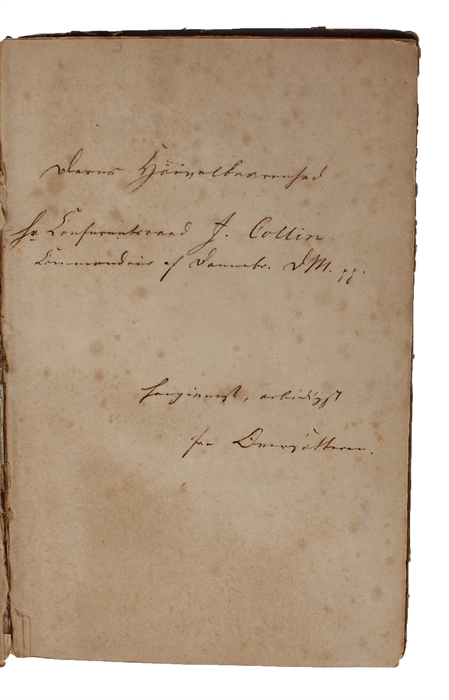 Deres Höivelbaarenhed
Hr Conferentsraad J. Collin
Commandeur af Dannebr. DM. pp.
hengivenst, ærbødigst
fra Oversætteren.